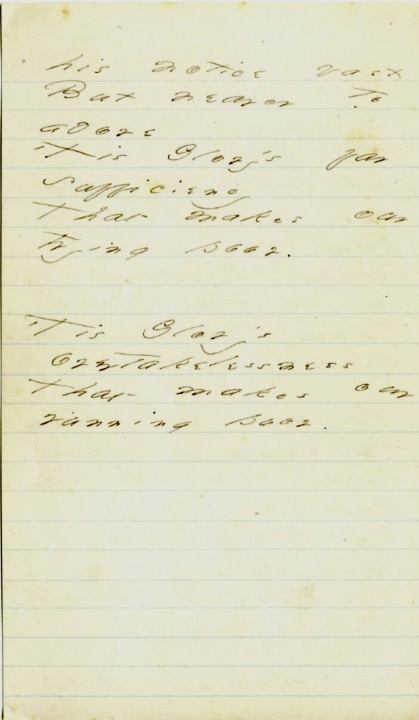 his notice vast
But nearer to
adore
'Tis Glory's far
sufficiency
That makes our
trying poor.
'Tis Glory's
overtakelessness
That makes our
running poor.